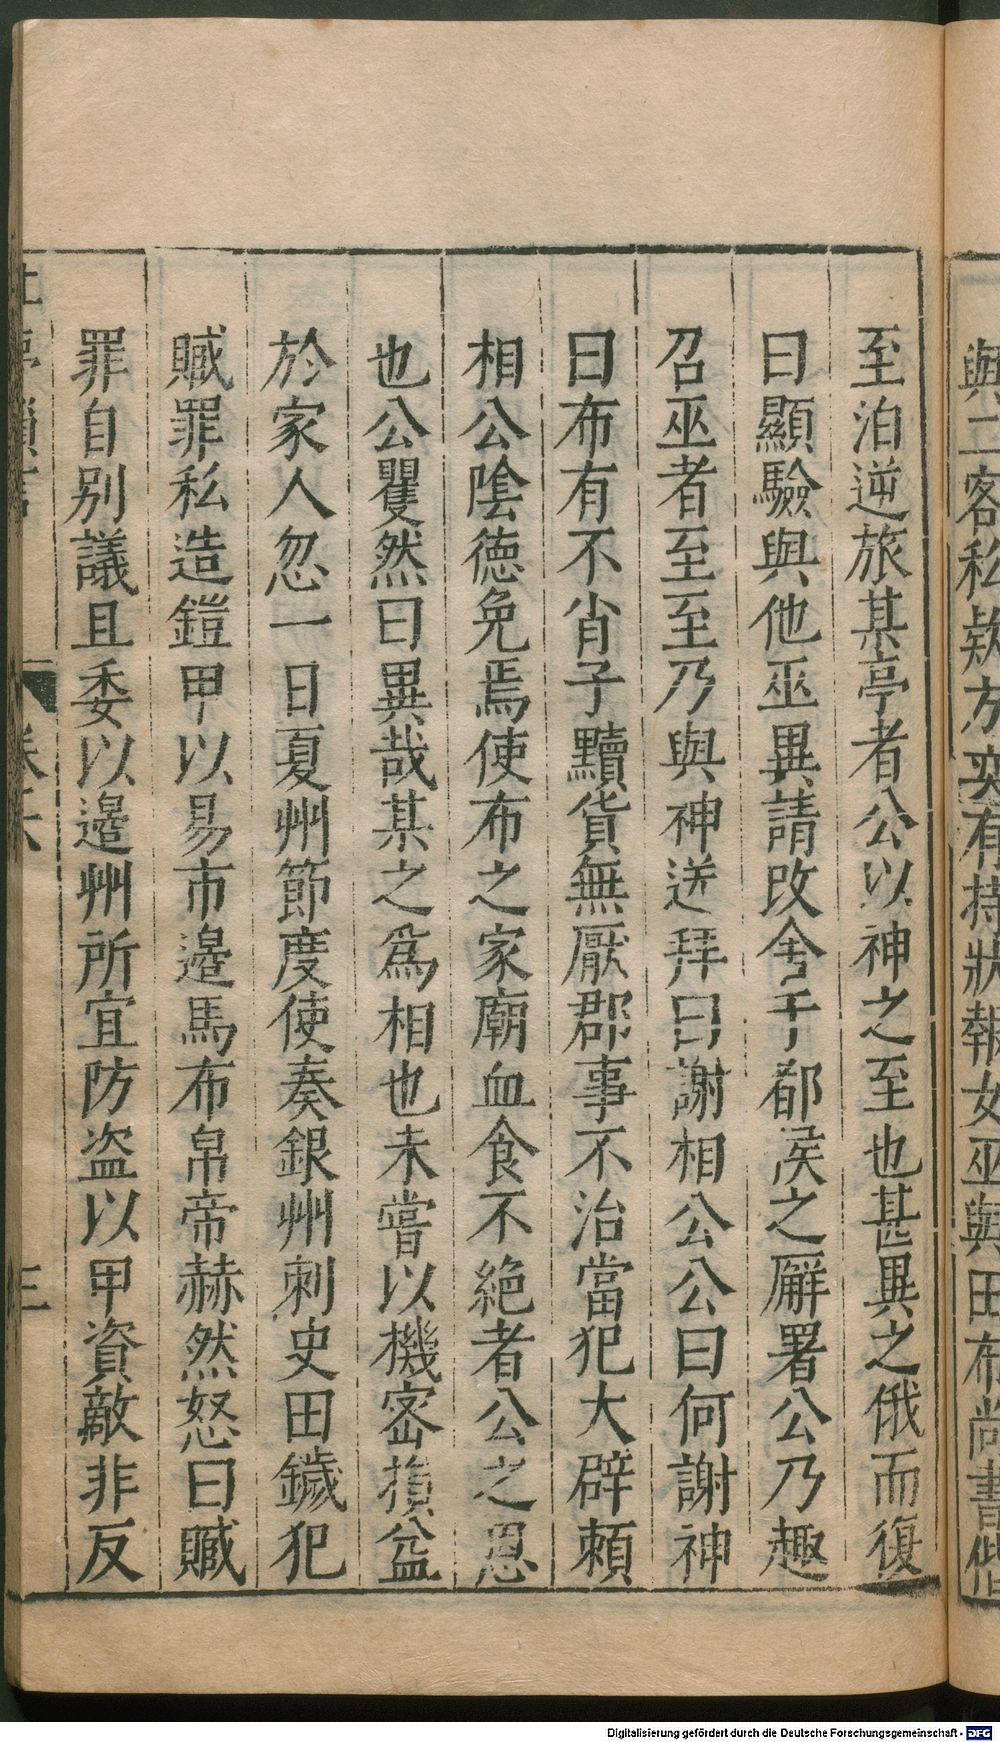 與二客私欵方奕有持狀報女巫與田布尚書偕
至泊逆旅某亭者公以神之至也甚異之俄而復
曰顯驗與他巫異請改舍于郗侯之廨署公乃趣
召巫者至至乃與神送拜曰謝相公公曰何謝神
曰布有不肖子黷貨無厭郡事不治當犯大辟頼
相公陰徳免焉使布之家廟血食不絶者公之恩
也公瞿然曰異哉某之爲相也未嘗以機密損益
於家人忽一日夏州節度使奏銀州刺史田鐬犯
贓罪私造鎧甲以易市邉馬布帛帝赫然怒曰贓
罪自别議且委以邉州所宜防盗以甲資敵非反
三
Digitalisierung gefördert durch die Deutsche Forschungsgemeinschaft - DFG